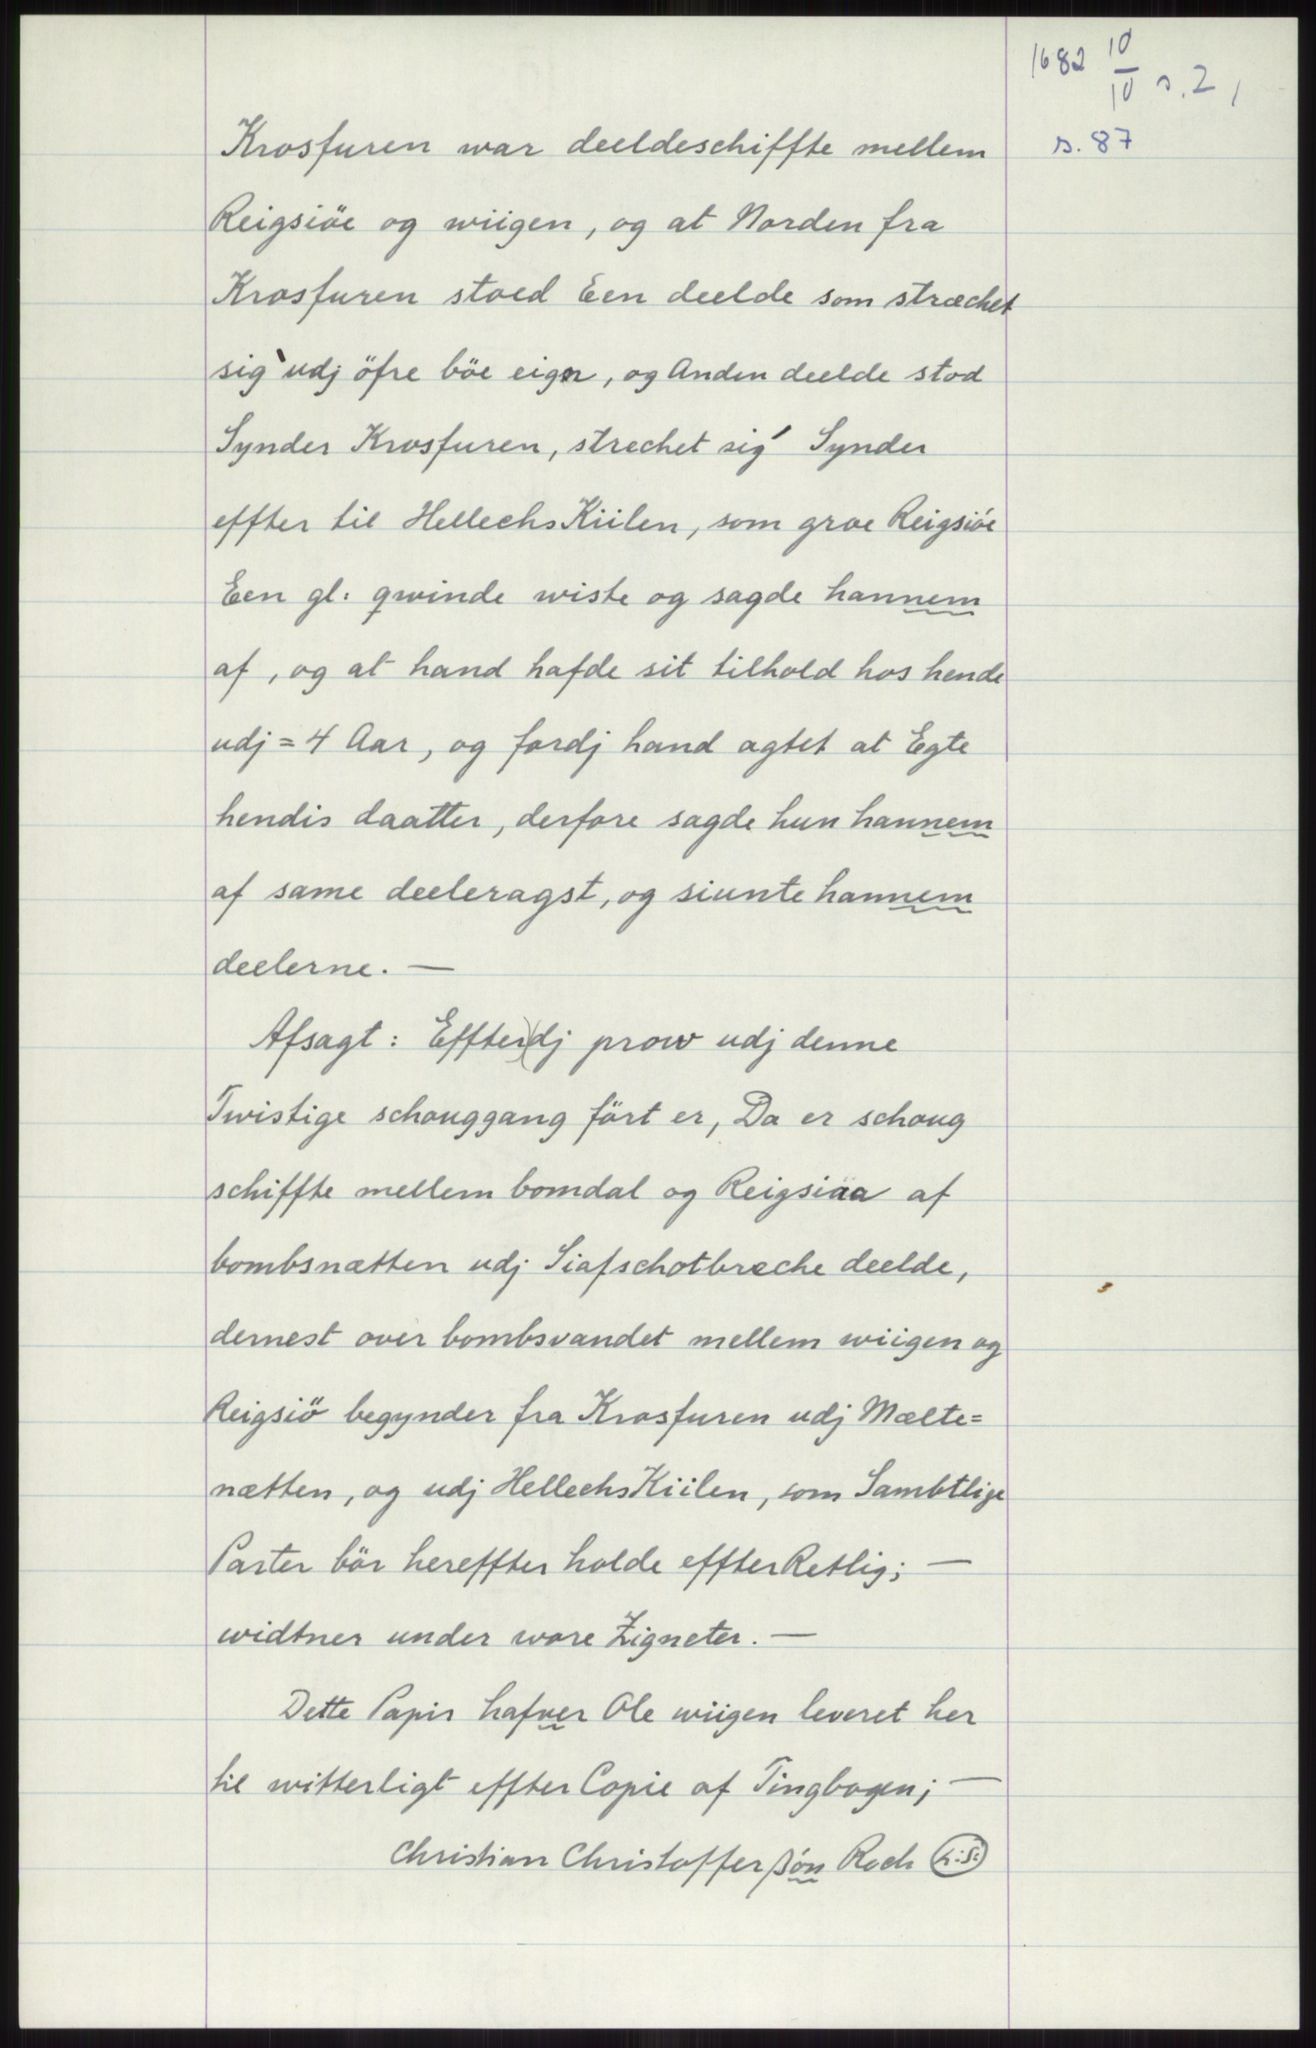 1682 10/10 s. 2,
s. 87
Krosfuren war deeldeschiffte mellem
Reigsiöe og wiigen, og at Norden fra
Krosfuren stoed Een deelde som stræchet
sig udj öfre böe eign, og Anden deelde stod
Synder Krosfuren, strechet sig Synder
effter til HellechsKiilen, som groe Reigsiöe
Een gl: qwinde wiste og sagde hannem
af, og at hand hafde sit tilhold hos hende
udj = 4 Aar, og fordj hand agtet at Egte
hendis daatter, derfore sagde hun hannem
af same deeleragst, og siunte hannem
deelerne. —
Afsagt: Effterdj prow udj denne
Twistige schouggang fört er, Da er schoug
schiffte mellem bomdal og Reigsiäa af
bombsnætten udj Siafschotbreche deelde,
dernest over bombsvandet mellem wiigen og
Reigsiö begynder fra Krosfuren udj Mælte=
nætten, og udj HellechsKiilen, som Sambtlige
Parter bör hereffter holde effterRetlig; —
widtner under wore Zigneter. —
Dette Papir hafver Ole wiigen leveret her
til witterligt effter Copie af Tingbogen; —
Christian Christoffer sön Roch L:S: